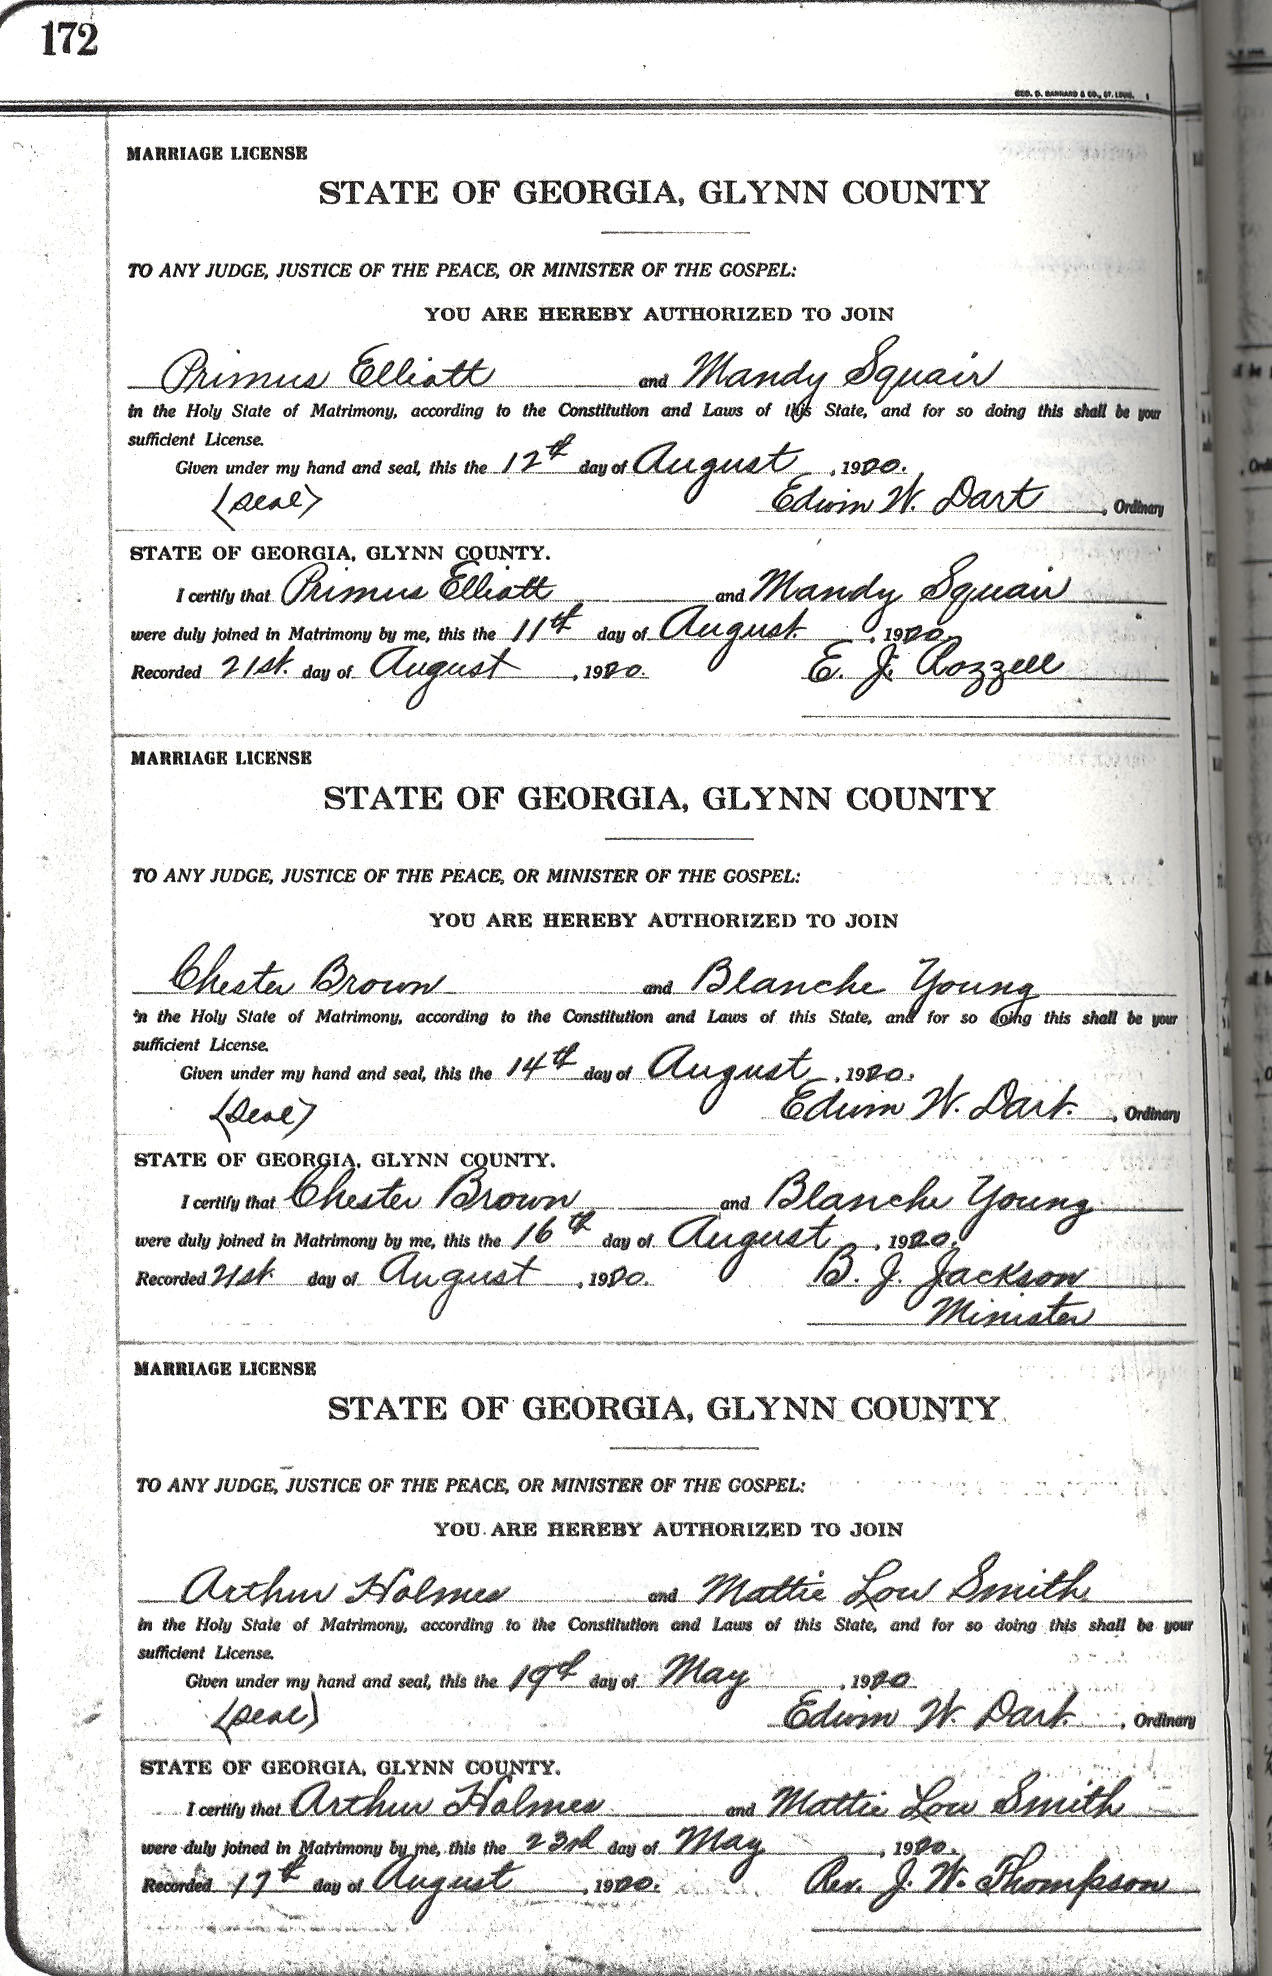 172
GEO. D. BARNARD & CO., ST. LOUIS.
MARRIAGE LICENSE
STATE OF GEORGIA, GLYNN COUNTY
TO ANY JUDGE, JUSTICE OF THE PEACE, OR MINISTER OF THE GOSPEL:
YOU ARE HEREBY AUTHORIZED TO JOIN
Primus Elliott and Mandy Squair
in the Holy State of Matrimony, according to the Constitution and Laws of this State, and for so doing this shall be your
sufficient License.
Given under my hand and seal, this the 12th day of August, 1920.
(Seal) Edwin W. Dart, Ordinary
STATE OF GEORGIA, GLYNN COUNTY.
I certify that Primus Elliott and Mandy Squair
were duly joined in Matrimony by me, this the 11th day of August, 1920.
Recorded 21st. day of August, 1920. E. J. Rozzell
MARRIAGE LICENSE
STATE OF GEORGIA, GLYNN COUNTY
TO ANY JUDGE, JUSTICE OF THE PEACE, OR MINISTER OF THE GOSPEL:
YOU ARE HEREBY AUTHORIZED TO JOIN
Chester Brown and Blanche Young
in the Holy State of Matrimony, according to the Constitution and Laws of this State, and for so doing this shall be your
sufficient License.
Given under my hand and seal, this the 14th day of August, 1920.
(Seal) Edwin W. Dart., Ordinary
STATE OF GEORGIA, GLYNN COUNTY.
I certify that Chester Brown and Blanche Young
were duly joined in Matrimony by me, this the 16th day of August, 1920.
Recorded 21st. day of August, 1920. B. J. Jackson
Minister
MARRIAGE LICENSE
STATE OF GEORGIA, GLYNN COUNTY
TO ANY JUDGE, JUSTICE OF THE PEACE, OR MINISTER OF THE GOSPEL:
YOU ARE HEREBY AUTHORIZED TO JOIN
Arthur Holmes and Mattie Low Smith
in the Holy State of Matrimony, according to the Constitution and Laws of this State, and for so doing this shall be your
sufficient License.
Given under my hand and seal, this the 19th day of May, 1920
(Seal) Edwin W. Dart., Ordinary
STATE OF GEORGIA, GLYNN COUNTY.
I certify that Arthur Holmes and Mattie Low Smith
were duly joined in Matrimony by me, this the 23rd day of May, 1920.
Recorded 17th day of August, 1920. Rev. J. W. Thompson